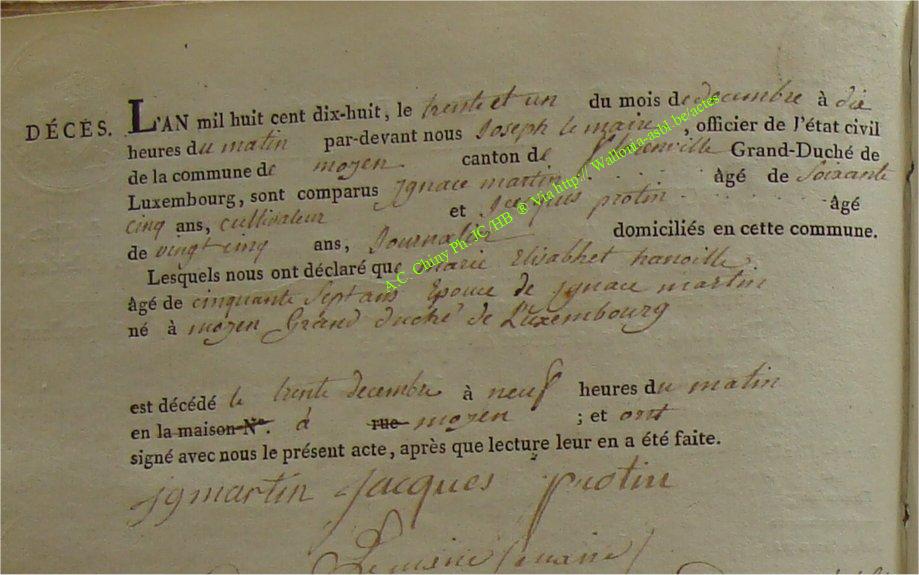 DÉCÈS. L'AN mil huit cent dix-huit, le trente et un du mois de decembre à dix
heures du matin par-devant nous Joseph lemaire, officier de l'état civil
de la commune de moyen canton de florenville Grand-Duché de
Luxembourg, sont comparus Ignace martin âgé de soixante
cinq ans, cultivateur et Jacques protin âgé
de vingt cinq ans, Journalier domiciliés en cette commune.
Lesquels nous ont déclaré que marie Elisabhet
âgé de cinquante sept ans Epouce de Ignace martin
né à moyen Grand duché de Luxembourg
est décédé le trente decembre à neuf heures du matin
en la maison N°. à rue moyen ; et ont
signé avec nous le présent acte, après que lecture leur en a été faite.
Jgmartin Jacques protin
Lemaire maire
A.C. Chiny Ph. JC/HB ® Via http://Wallonia-asbl.be/actes